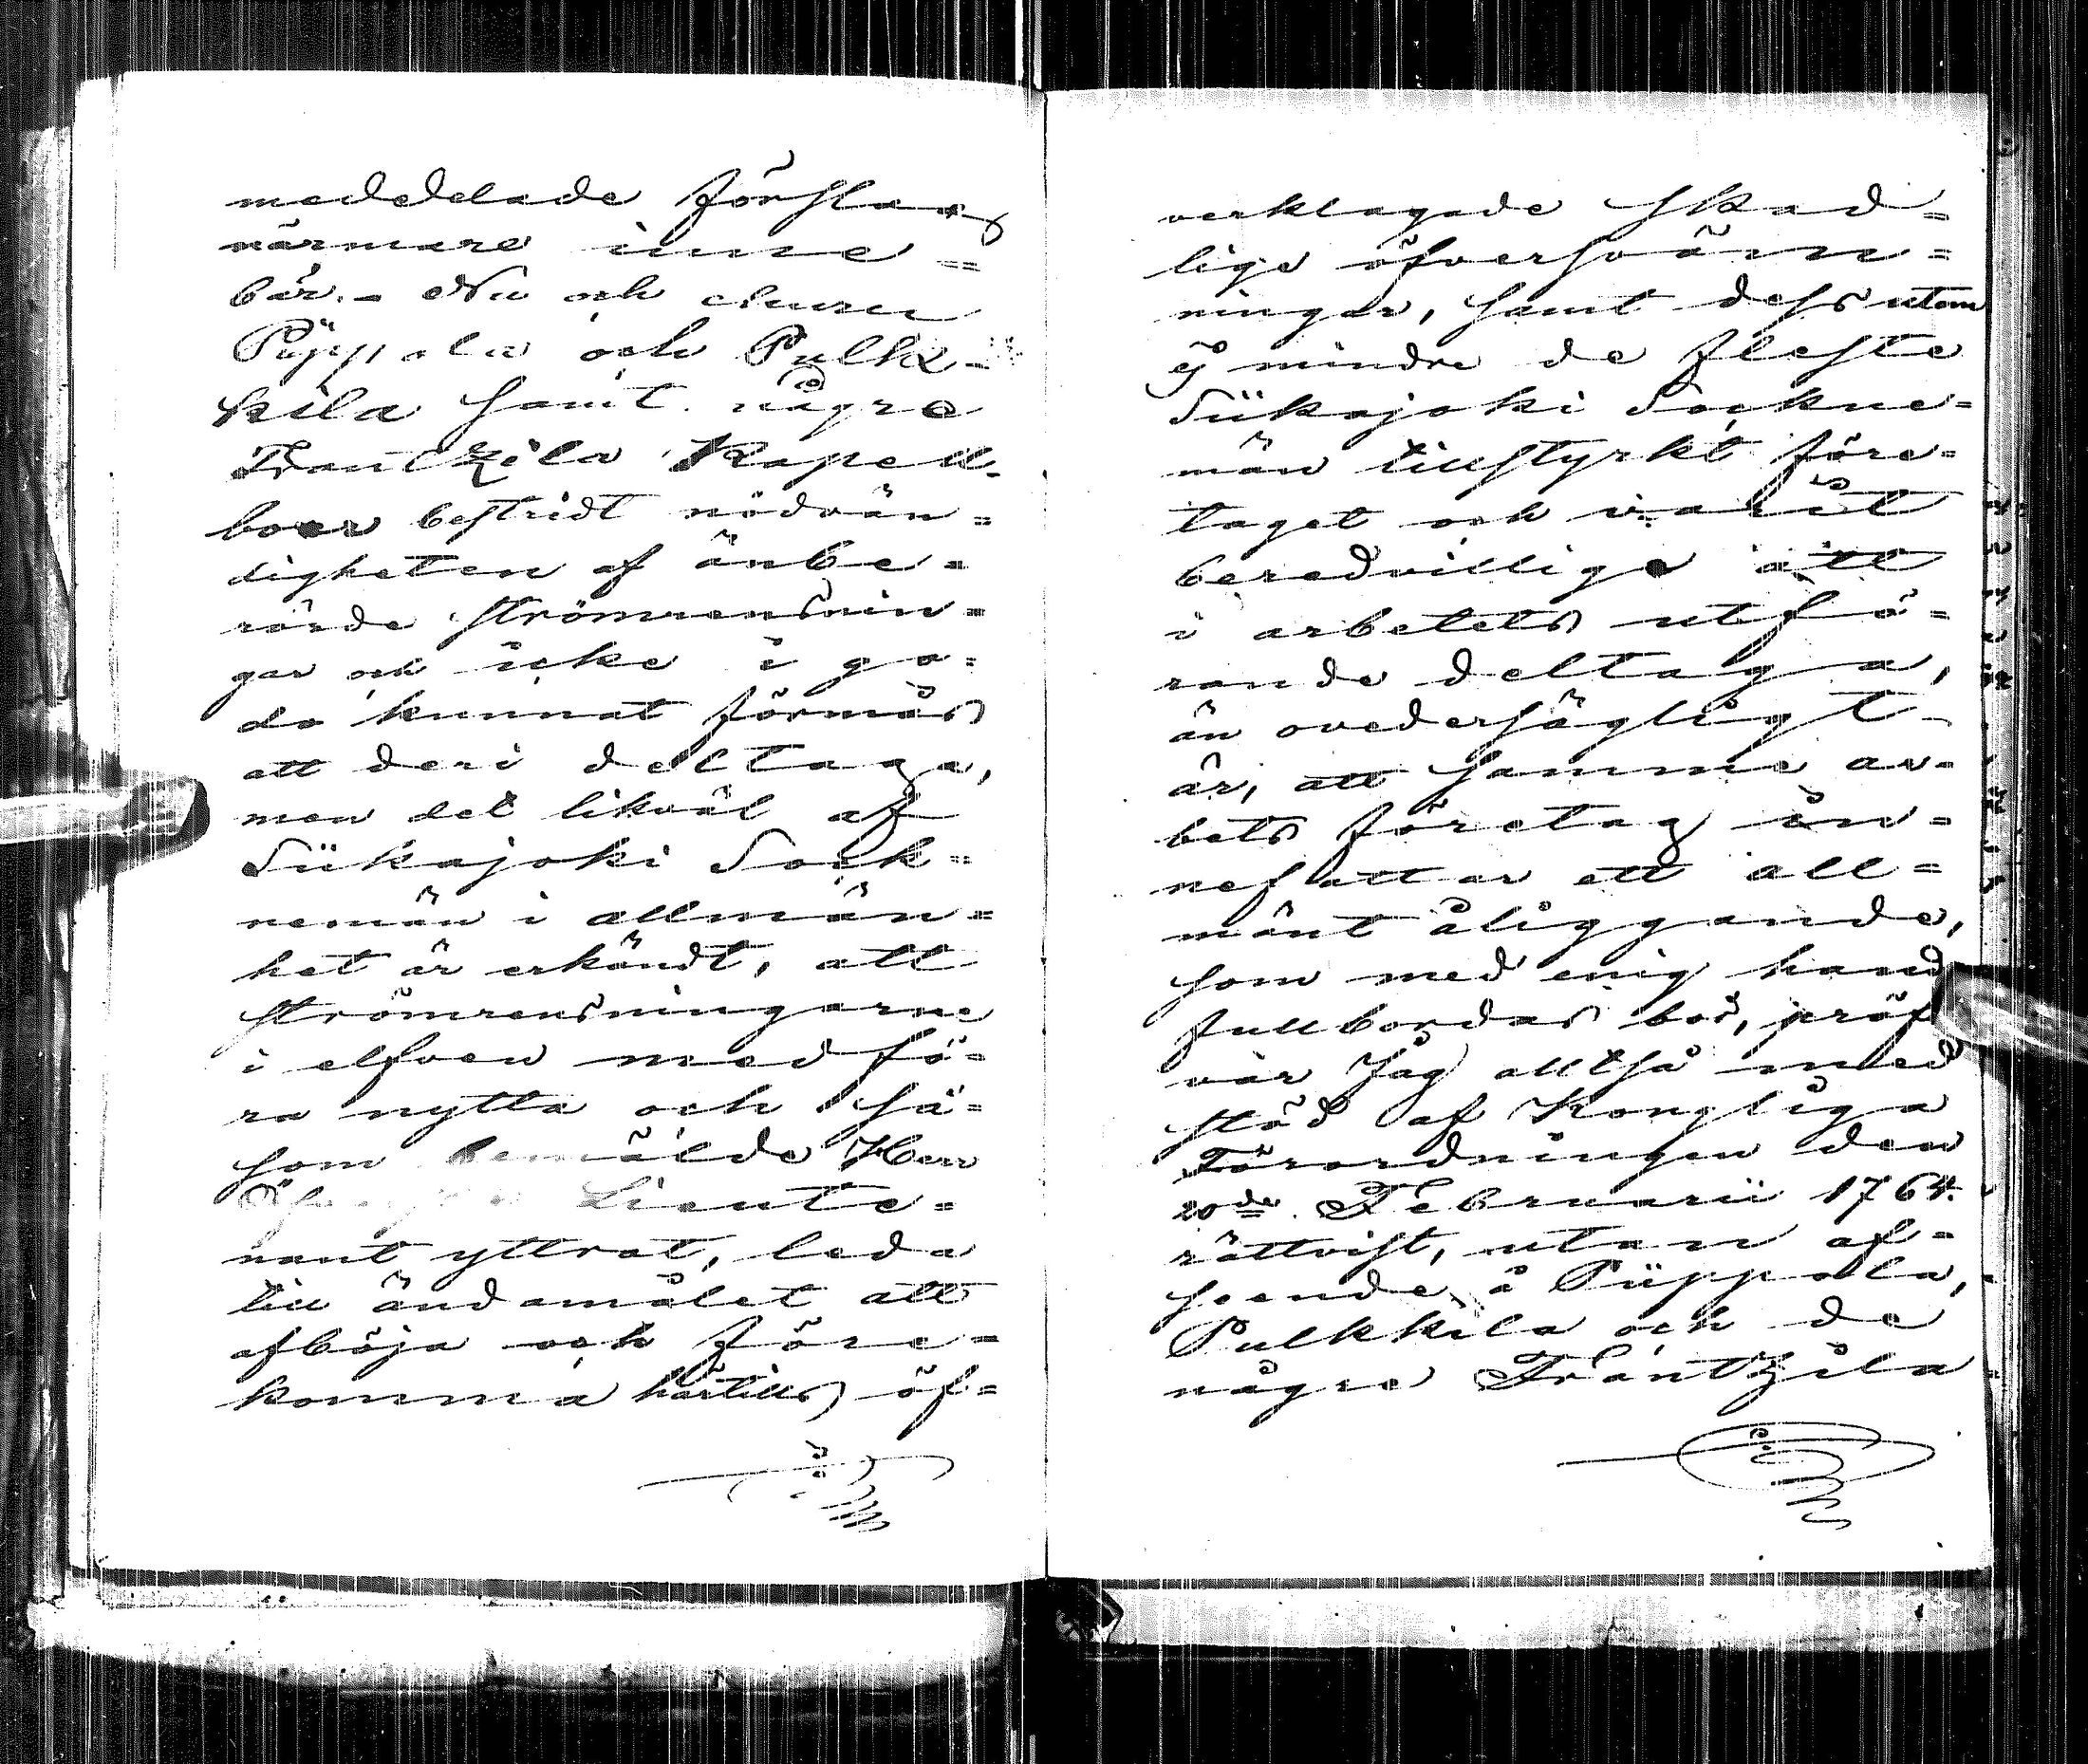 meddelade förslag
närmare inne=
bär. - Nu och ehuru
Püppola och Pulk=
kila samt någre
Frantzila Kapell-
boer bestridt nödvän=
digheten af änbe=
rörde strömrensnin=
gar och icke i go=
do kunnat förmås
att deri deltaga,
men det likväl af
Siikajoki Sock=
nemän i allmän=
het är erkändt, att
strömrensningarne
i elfven medfö=
ra nytta och så=
som bemälde Herr
Lieute=
nant yttrat, leda
till ändamålet att
afböja och före=
komma härtills öf=
verklagade skad=
lige öfversväm=
ningar, samt dessutom
ej mindre de fleste
Siikajoki Sockne=
män tillstyrkt före=
taget och varit
beredvillige att
i arbetets utfö=
rande deltaga,
än ovedersägligt
är, att samma ar=
bets företag in=
nefattar ett all=
mänt åliggande,
som med enig hand
fullbordas bör, pröf
var Jag alltså med
stöd af Kongliga
Förordningen den
20de Februarii 1764
rättvist, utan af=
seende å Püppola,
Pulkkila och de
någre Frantzila